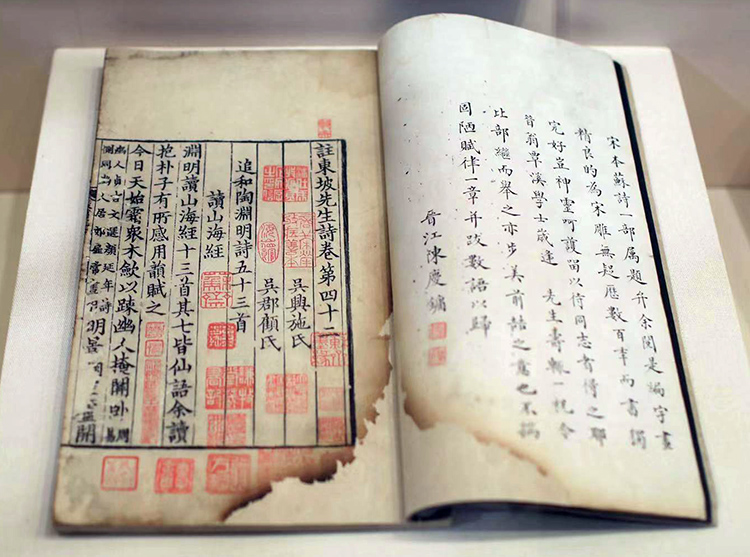 宋本蘇詩一部属題弁余閱是編字畫
精良的為宋雕無疑歷數百年而書獨
完好豈神靈呵護留以待同志者得之耶
昔翁覃溪學士歲逢 先生壽輒一祝今
比部繼而舉之亦步美前喆之意也不揣
固陋賦律一章并跋數語以歸
晉江陳慶鏞
註東坡先生詩卷第四十二
吳興施氏
吳郡顧氏
追和陶淵明詩五十三首
讀山海經
淵明讀山海經十三首其七皆仙語余讀
抱朴子有所感用韻賦之
今日天始霜衆木斂以疎幽人掩關卧周易
幽人貞吉文選顏延年詩
幽人居郊扉常晝
明景
開